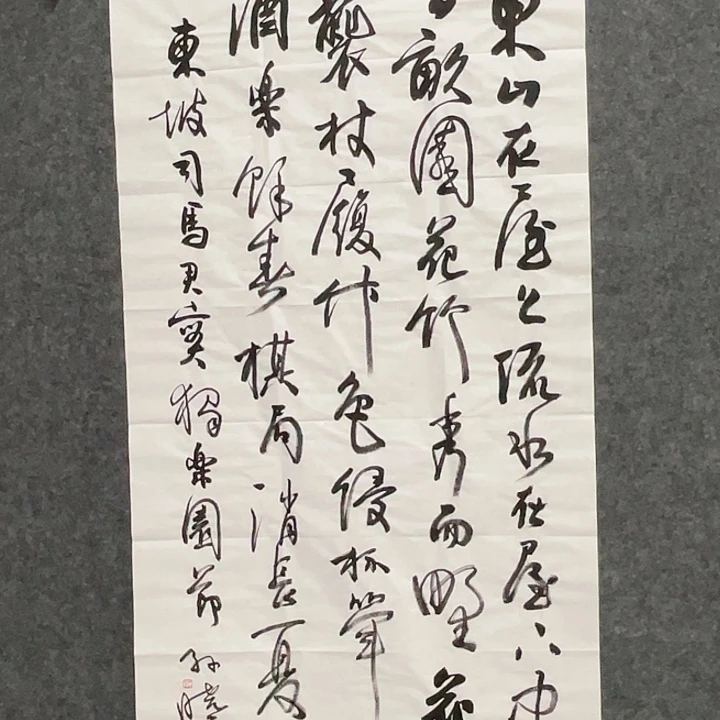 山在屋上流水在屋下中
畝園花竹秀而野花
襲杖履竹色侵杯斝
酒樂餘春棋局消長夏
東坡司馬君實獨樂園節 孫